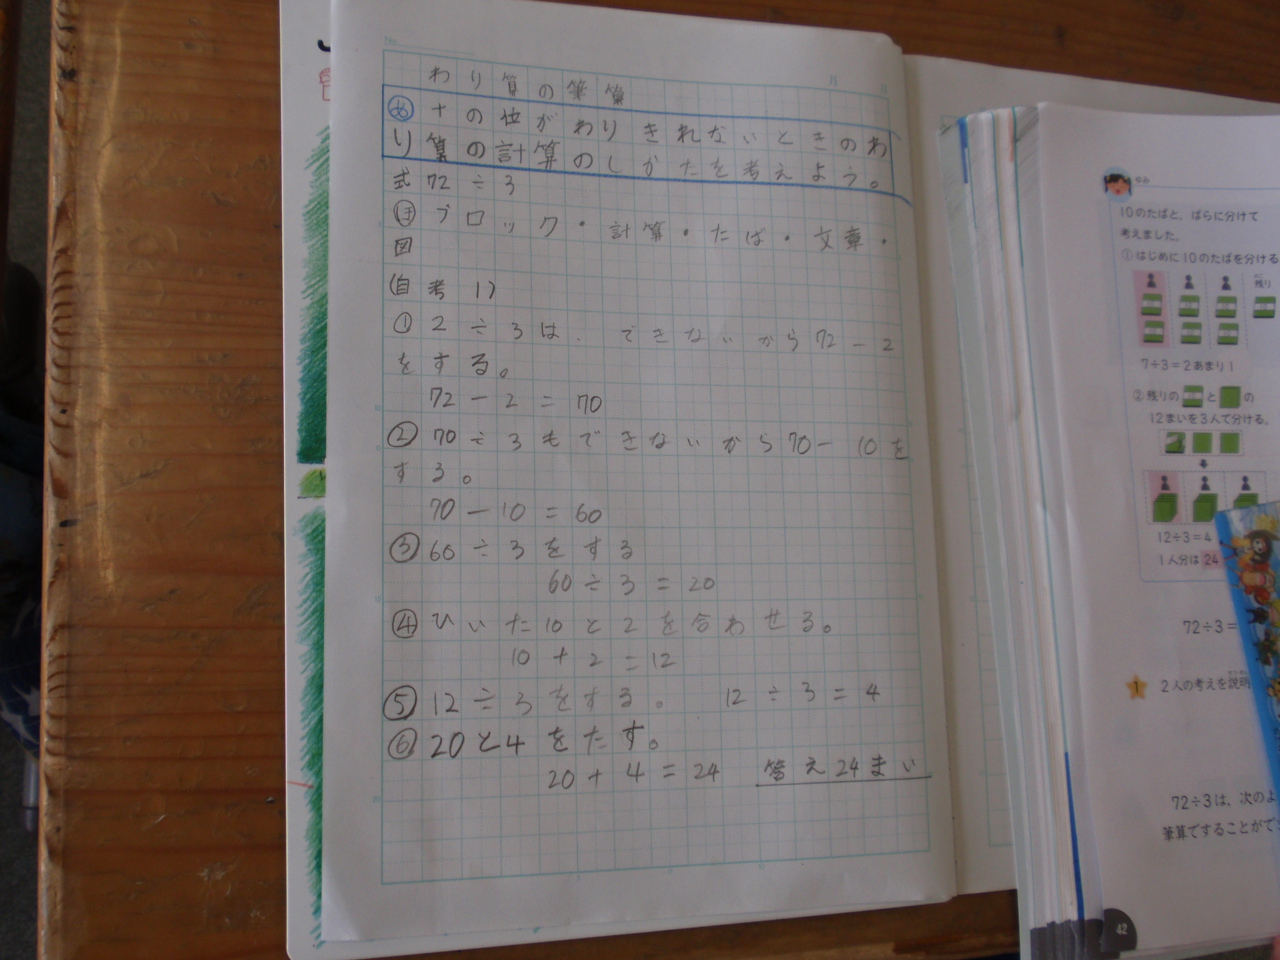 No.
月
日
わり算の筆算
め 十の位がわりきれないときのわ
り算の計算のしかたを考えよう。
式 72÷3
ほ ブロック・計算・たば・文章・
図
(自考1)
① 2÷3は、できないから72-2
をする。
72-2=70
② 70÷3もできないから70-10を
する。
70-10=60
③ 60÷3をする
60÷3=20
④ ひいた10と2を合わせる。
10+2=12
⑤ 12÷3をする。 12÷3=4
⑥ 20と4をたす。
20+4=24 答え24まい
ゆみ
10のたばと、ばらに分けて
考えました。
①はじめに10のたばを分ける
残り
のこ
7÷3=2あまり1
②残りの と の
12まいを3人で分ける。
12÷3=4
1人分は 24
72÷3=
1 2人の考えを説明
72÷3は、次のよ
筆算ですることがで
42